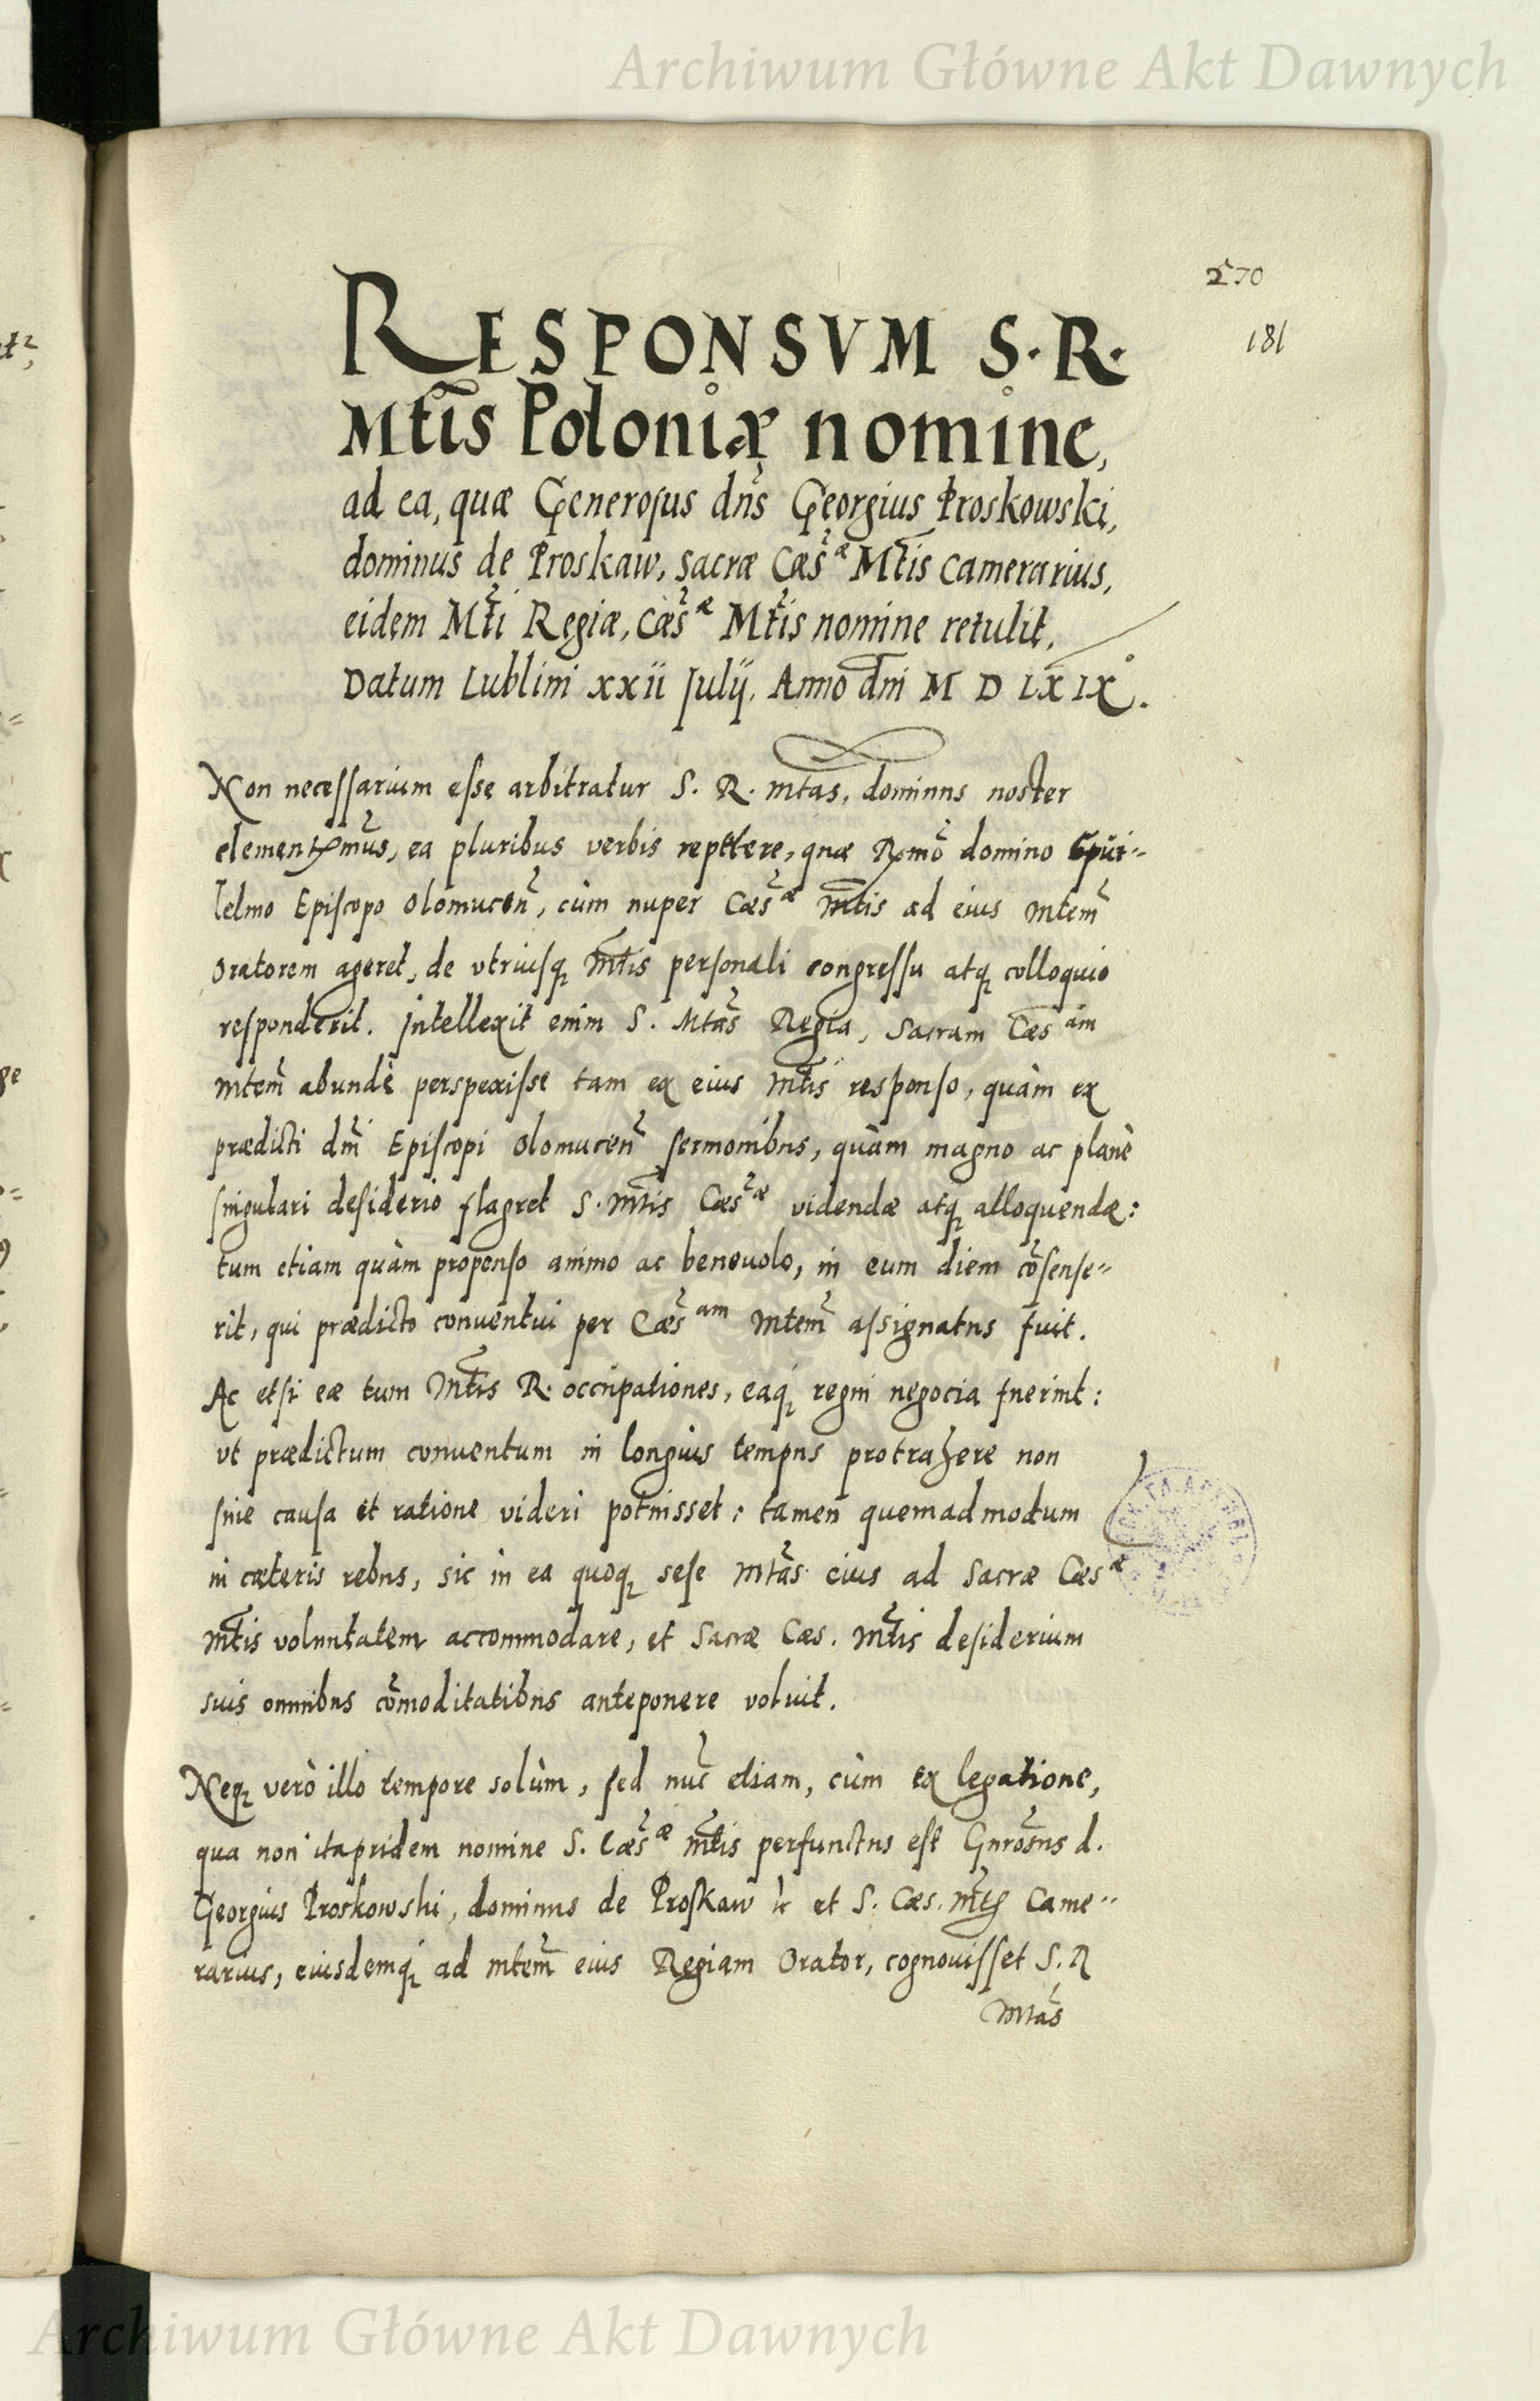 Archiwum Główne Akt Dawnych
270
181
RESPONSVM S. R.
Mtis Poloniæ nomine,
ad ea, quæ Generosus dns Georgius Proskowski,
dominus de Proskaw, sacræ Cæsæ Mtis camerarius,
eidem Mti Regiæ, Cæsæ Mtis nomine retulit.
Datum Lublini xxii Julij. Anno dni M D LXIX.
Non necessarium esse arbitratur S. R. mtas, dominus noster
clementmus, ea pluribus verbis repetere, quæ Rmo domino
lelmo Episcopo Olomucen, cùm nuper Cæsæ mtis ad eius mtem
oratorem ageret, de vtriusq mtis personali congressu atq colloquio
responderit. Intellexit enim S. Mtas Regia, sacram Cæsam
mtem abundè perspexisse tam ex eius mtis responso, quàm ex
prædicti dni Episcopi Olomucen sermonibus, quàm magno ac planè
singulari desiderio flagret S. mtis Cæsæ videndæ atq alloquendæ:
tum etiam quàm propenso animo ac beneuolo, in eum diem cõsense=
rit, qui prædicto conuentui per Cæsam mtem assignatus fuit.
Ac etsi eæ tum Mtis R. occupationes, eaq regni negocia fuerint:
vt prædictum conuentum in longius tempus protrahere non
sine causa et ratione videri potuisset: tamen quemadmodum
in cæteris rebus, sic in ea quoq sese mtas eius ad sacræ Cæsæ
mtis voluntatem accommodare, et sacræ Cæs. mtis desiderium
suis omnibus cõmoditatibus anteponere voluit.
Neq verò illo tempore solùm, sed nuc etiam, cùm ex legatione,
qua non itapridem nomine S. Cæsæ mtis perfunctus est Gnrosus d.
Georgius Proskowski, dominus de Proskaw et S. Cæs. mtis Came=
rarius, eiusdemq ad mtem eius Regiam Orator, cognouisset S. R
Mtas
Archiwum Główne Akt Dawnych